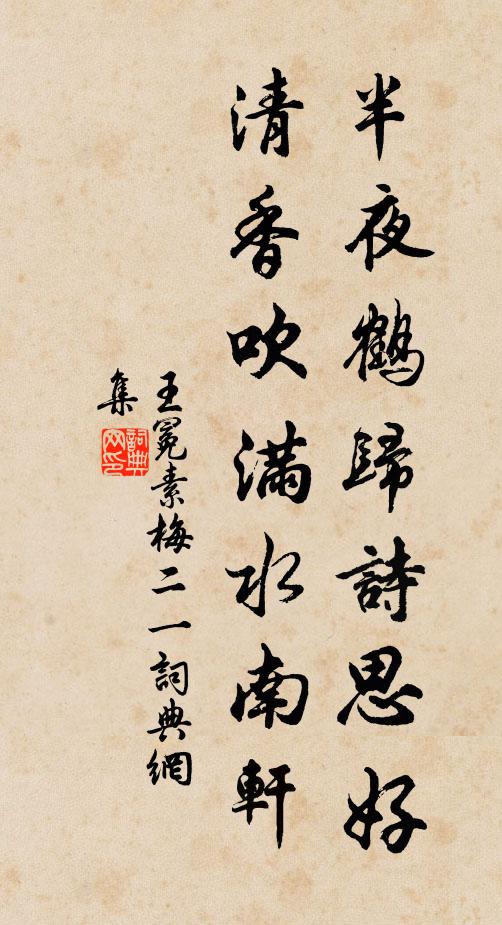 半夜鶴歸詩思好
清香吹滿水南軒
王冕素梅二一詞典網
集
詞典網印